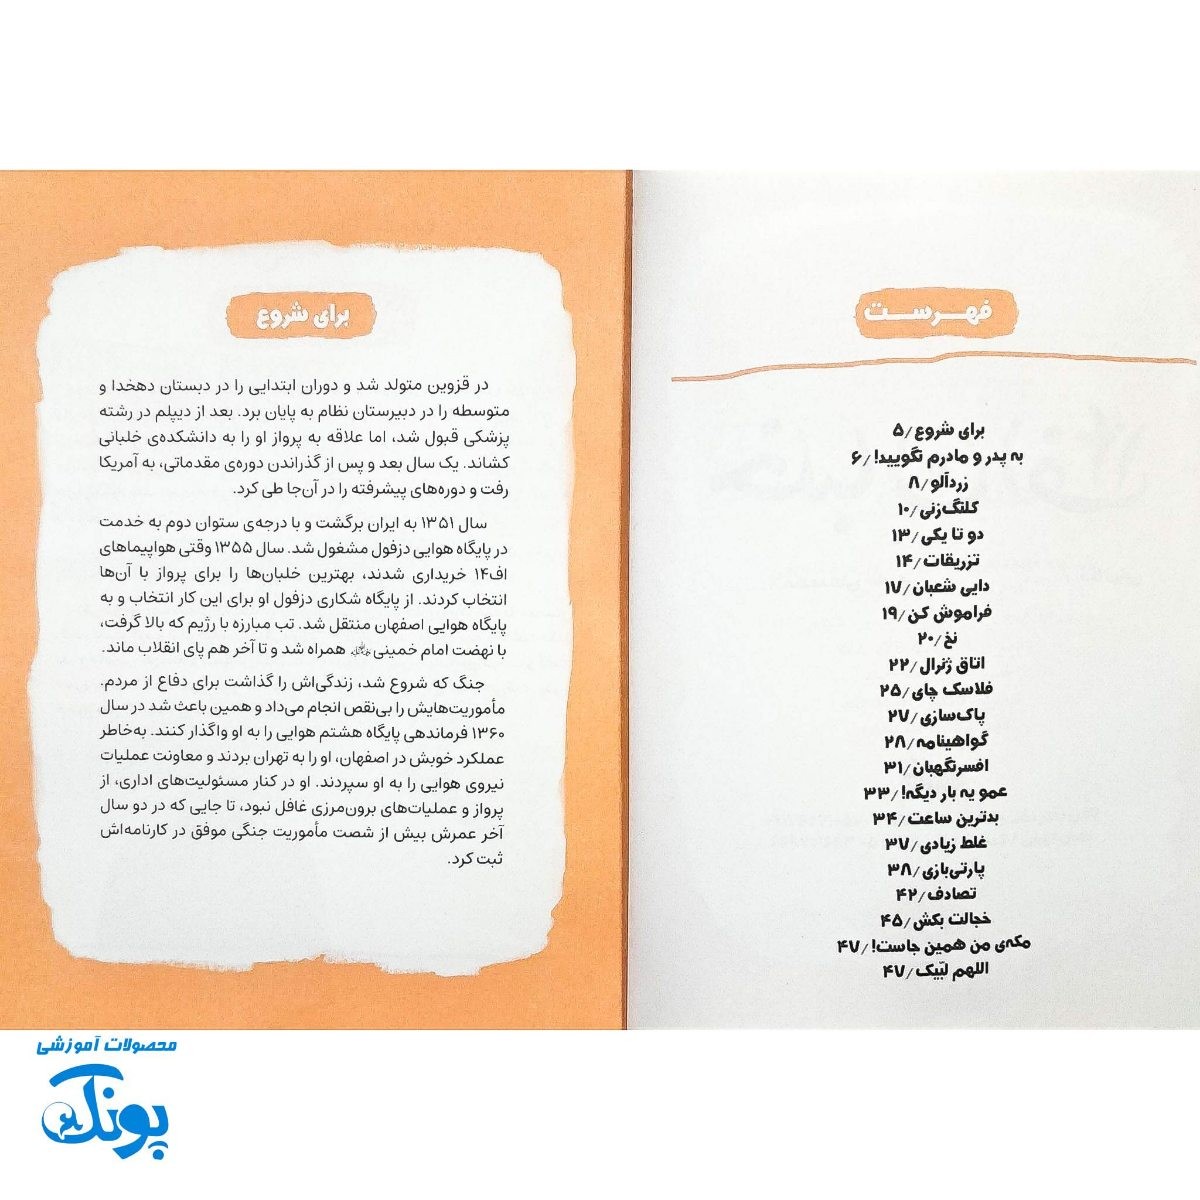 فهرست
برای شروع/۵
به پدر و مادرم نگویید!/۶
زردآلو/۸
کلنگ‌زنی/۱۰
دو تا یکی/۱۳
تزریقات/۱۴
دایی شعبان/۱۷
فراموش کن/۱۹
نخ/۲۰
اتاق ژنرال/۲۲
فلاسک چای/۲۵
پاک‌سازی/۲۷
گواهینامه/۲۸
افسرنگهبان/۳۱
عمو یه بار دیگه!/۳۳
بدترین ساعت/۳۴
غلط زیادی/۳۷
پارتی‌بازی/۳۸
تصادف/۴۲
خجالت بکش/۴۵
مکه‌ی من همین جاست!/۴۷
اللهم لبّیک/۴۷
برای شروع
در قزوین متولد شد و دوران ابتدایی را در دبستان دهخدا و
متوسطه را در دبیرستان نظام به پایان برد. بعد از دیپلم در رشته
پزشکی قبول شد، اما علاقه به پرواز او را به دانشکده‌ی خلبانی
کشاند. یک سال بعد و پس از گذراندن دوره‌ی مقدماتی، به آمریکا
رفت و دوره‌های پیشرفته را در آن‌جا طی کرد.
سال ۱۳۵۱ به ایران برگشت و با درجه‌ی ستوان دوم به خدمت
در پایگاه هوایی دزفول مشغول شد. سال ۱۳۵۵ وقتی هواپیماهای
اف۱۴ خریداری شدند، بهترین خلبان‌ها را برای پرواز با آن‌ها
انتخاب کردند. از پایگاه شکاری دزفول او برای این کار انتخاب و به
پایگاه هوایی اصفهان منتقل شد. تب مبارزه با رژیم که بالا گرفت،
با نهضت امام خمینی همراه شد و تا آخر هم پای انقلاب ماند.
جنگ که شروع شد، زندگی‌اش را گذاشت برای دفاع از مردم.
مأموریت‌هایش را بی‌نقص انجام می‌داد و همین باعث شد در سال
۱۳۶۰ فرماندهی پایگاه هشتم هوایی را به او واگذار کنند. به‌خاطر
عملکرد خوبش در اصفهان، او را به تهران بردند و معاونت عملیات
نیروی هوایی را به او سپردند. او در کنار مسئولیت‌های اداری، از
پرواز و عملیات‌های برون‌مرزی غافل نبود، تا جایی که در دو سال
آخر عمرش بیش از شصت مأموریت جنگی موفق در کارنامه‌اش
ثبت کرد.
محصولات آموزشی
پونک